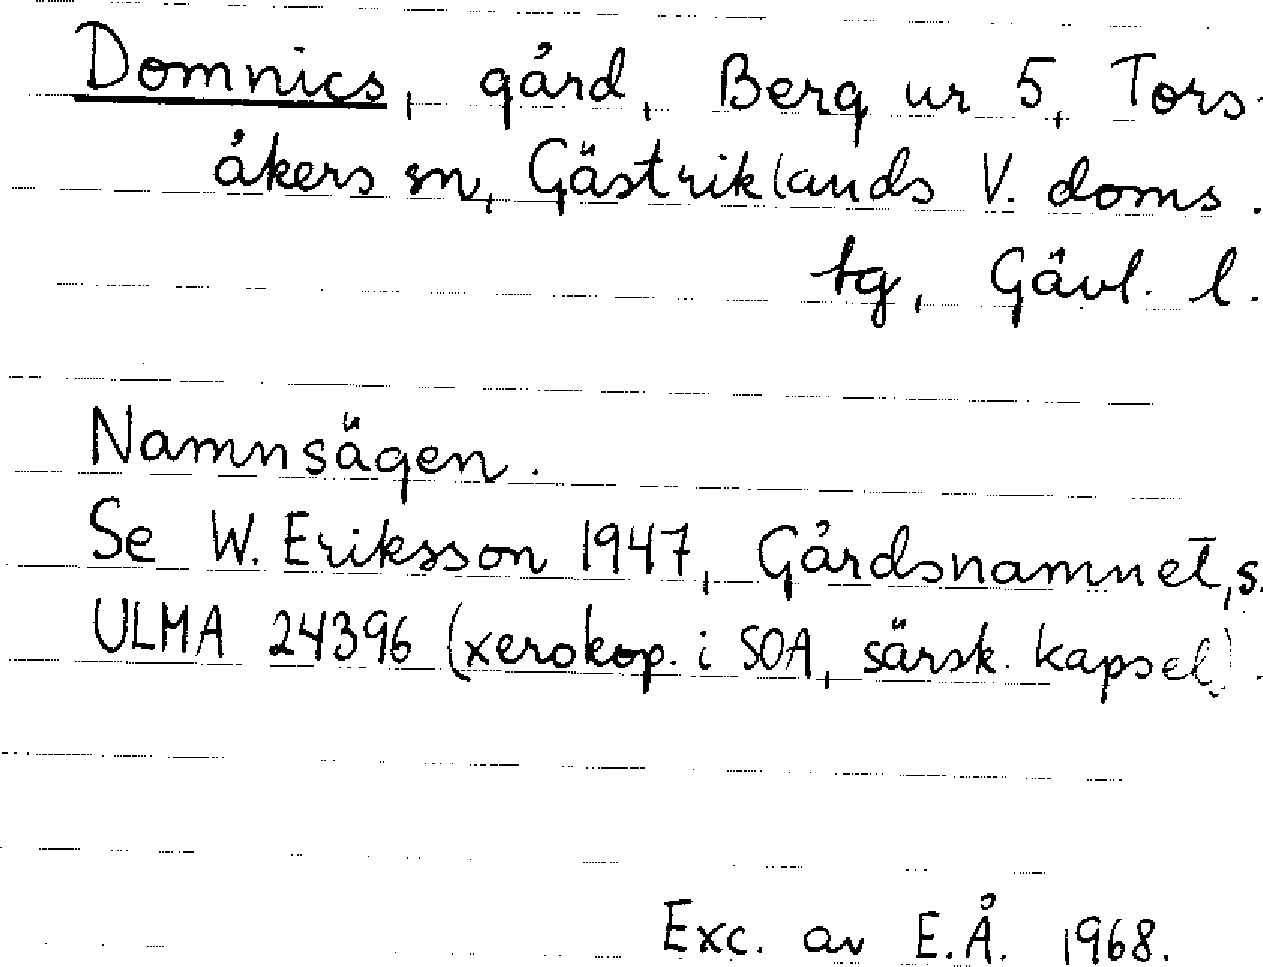 Domnics, gård, Berg nr 5, Tors-
åkers sn, Gästriklands V. doms.
tg, Gävl. l.
Namnsägen.
Se W. Eriksson 1947, Gårdsnamnet, s.
ULMA 24396 (xerokop. i SOA, särsk. kapsel).
Exc. av E.Å. 1968.